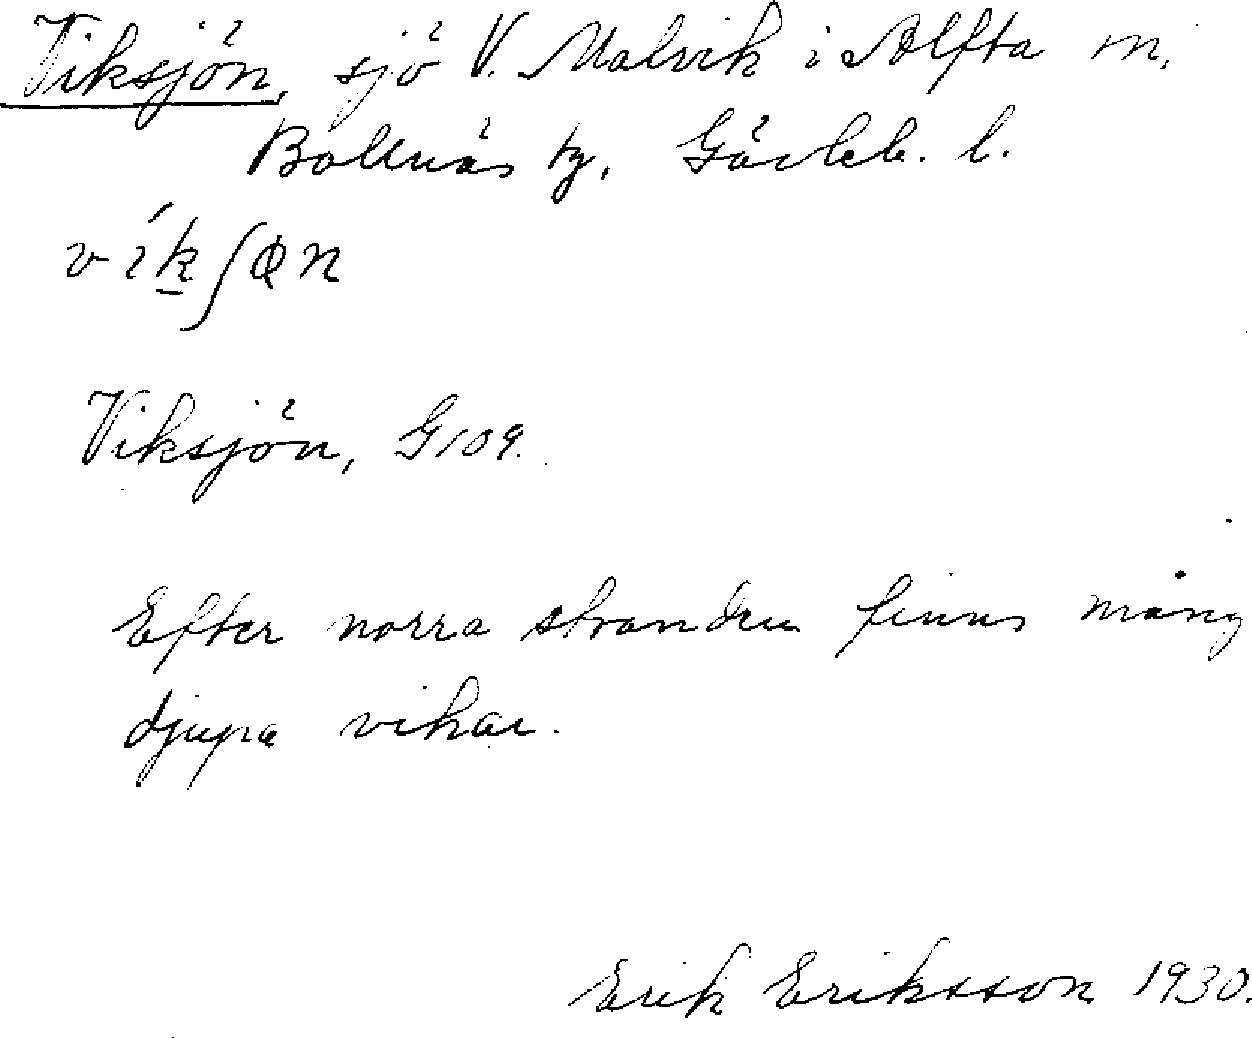 Viksjön, sjö V. Malvik i Alfta m,
Bollnäs tg, Gävleb. l.
vík̲ʃøn
Viksjön, G109.
Efter norra stranden finns mång
djupa vikar.
Erik Eriksson 1930.